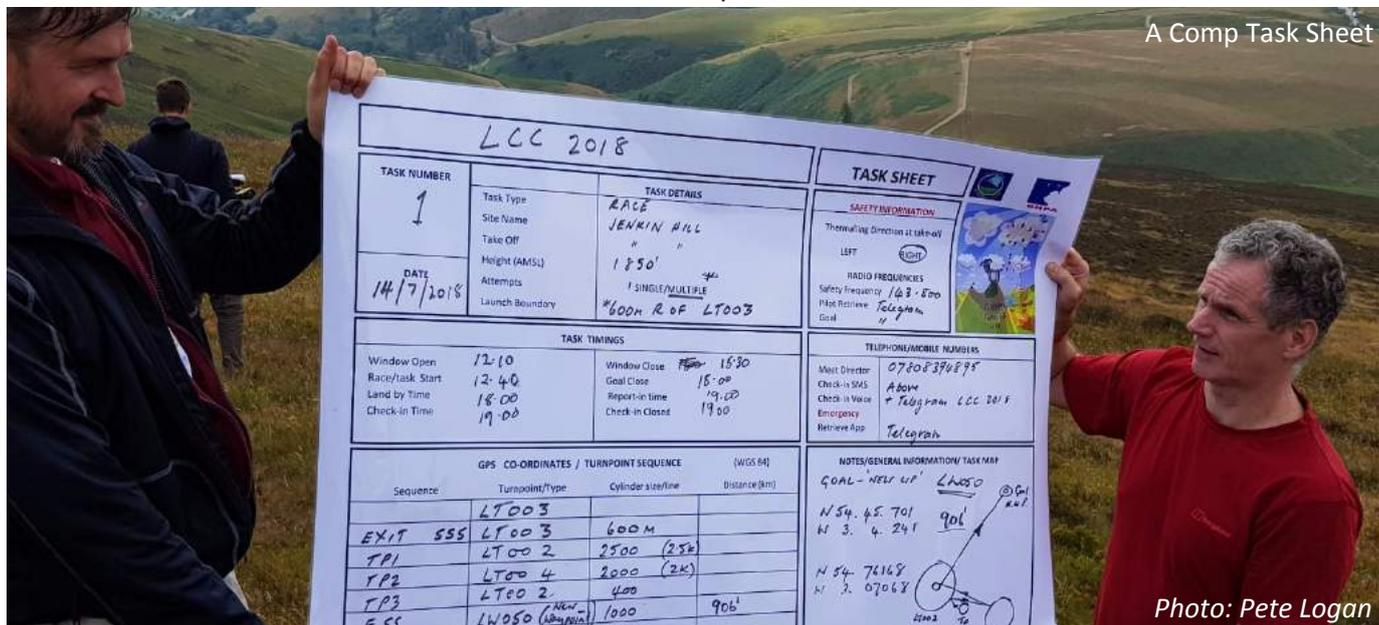 A Comp Task Sheet
LCC 2018
TASK NUMBER
1
DATE
14/7/2018
TASK DETAILS
Task Type RACE
Site Name JENKIN HILL
Take Off " "
Height (AMSL) 1850'
Attempts ! SINGLE/MULTIPLE yes
Launch Boundary *600m R OF LT003
TASK SHEET
SAFETY INFORMATION
Thermalling Direction at take-off
LEFT RIGHT
RADIO FREQUENCIES
Safety Frequency 143.800
Pilot Retrieve Telegram
Goal "
TASK TIMINGS
Window Open 12.10 Window Close 15.30
Race/task Start 12.40 Goal Close 18.00
Land by Time 18.00 Report-in time 19.00
Check-in Time 19.00 Check-in Closed 1900
TELEPHONE/MOBILE NUMBERS
Meet Director 07808394895
Check-in SMS Above
Check-in Voice + Telegram LCC 2018
Emergency
Retrieve App Telegram
GPS CO-ORDINATES / TURNPOINT SEQUENCE (WGS 84)
Sequence Turnpoint/Type Cylinder size/line Distance (km)
LT003
EXIT SSS LT003 600M
TP1 LT002 2500 (2.5k)
TP2 LT004 2000 (2K)
TP3 LT002 400
ESS LW050 (NEW WAYPOINT) 1000 906'
NOTES/GENERAL INFORMATION/ TASK MAP
GOAL - 'NEW WP' LW050
N 54. 45. 701
W 3. 4. 241 906'
N 54. 76168
W 3. 07068
Goal
LT002
Photo: Pete Logan